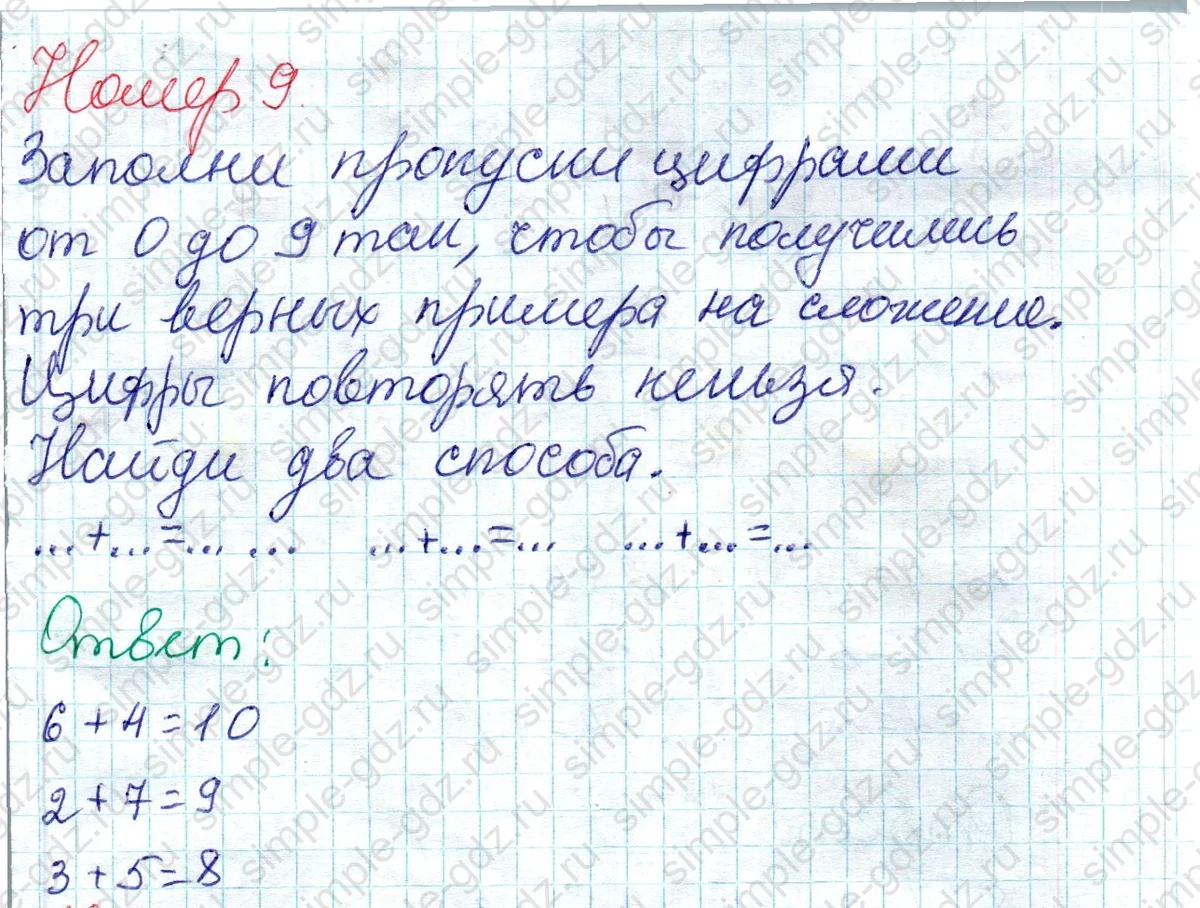 Номер 9.
Заполни пропуски цифрами
от 0 до 9 так, чтобы получились
три верных примера на сложение.
Цифры повторять нельзя.
Найди два способа.
...+...=... ... ...+...=... ...+...=...
Ответ:
6+4=10
2+7=9
3+5=8
simple-gdz.ru